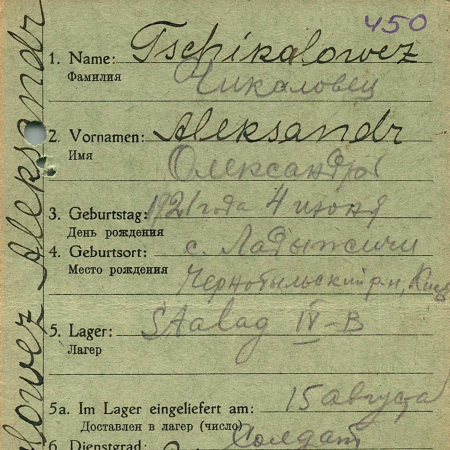 450
1. Name: Tschikalowez
Фамилия Чикаловец
2. Vornamen: Aleksandr
Имя Олександр
3. Geburtstag: 1921 года 4 июня
День рождения
4. Geburtsort: с. Ладыжичи
Место рождения Чернобыльский р-н, Киев
5. Lager: Stalag IV-B
Лагер
5a. Im Lager eingeliefert am: 15 августа
Доставлен в лагер (число)
6. Dienstgrad: Солдат
lowez Aleksandr